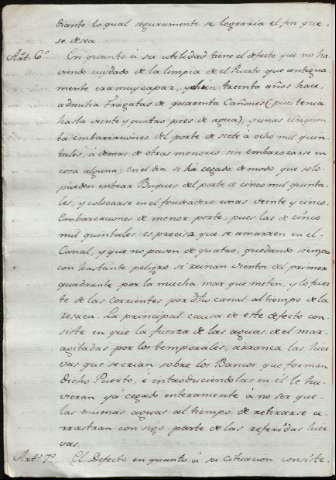 diante lo qual seguramente se lograria el fin que
se desea.
Art.º 6.º En quanto á su utilidad tiene el defecto que no ha-
viendo cuydado de la limpia de el Puerto que antigua-
mente era muy capaz, y treinta años hace,
admitia Fragatas de quarenta Cañones (pues tenia
hasta veinte y quatro pies de agua), y unas
embarcaciones del porte de siete á ocho mil quin-
tales, á demas de otras menores sin embarazarse en
cosa alguna; en el dia se há cegado de modo que solo
pueden entrar Buques del parte de cinco mil quinta-
les, y colocarse en el fondeadero unas veinte y cinco
Embarcaciones de menor porte, pues las de cinco
mil quintales, es precisa que se amarren en el
Canal, y que no pasen de quatro, quedando siempre
con bastante peligro si reinan vientos del primer
quadrante por la mucha mar que meten, y lo fuer-
te de las corrientes por dho canal al tiempo de la
resaca. La principal causa de este defecto con-
siste en que la fuerza de las aguas de el mar
agitadas por los temporales, arranca las
vas que se crian sobre los Bancos que forman
dicho Puerto, é introduciendolas en el le hu-
vieran ya cegado enteramente á no ser que
las mismas aguas al tiempo de retirarse a-
rrastran consigo parte de las referidas
vas.
Art.º 7.º El Defecto en quanto á su situacion consiste